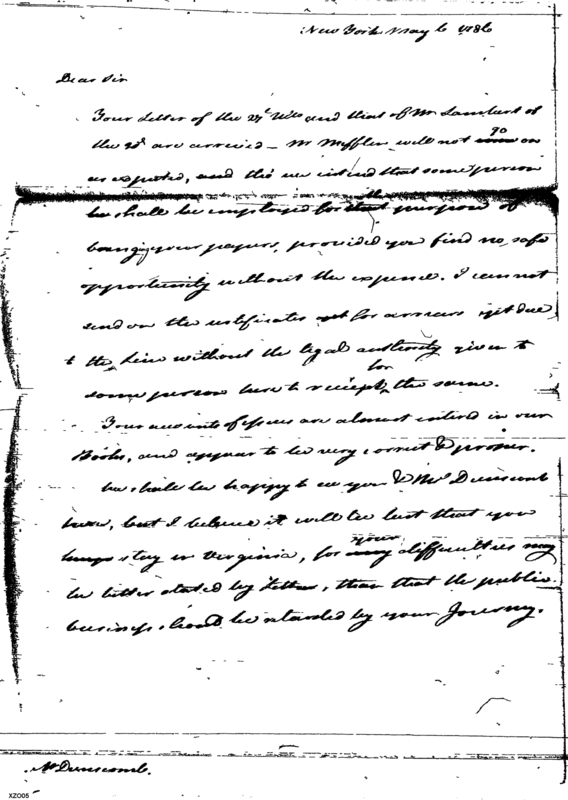 New York May 6 1786
Dear Sir
Your Letter of the 21t Ulto and that of Mr Lambert of
the 23d are arrived – Mr Mifflin will not go on
as expected, and tho' we intend that some person
be shall be employed for the purpose of
bringing your papers, provided you find no safe
opportunity without the expence. I cannot
send on the certificates for arrears yet due
to the Line without the legal authority given to
some person here to receipt for the same.
Your accounts of issues are almost entered in our
Books, and appear to be very correct & proper.
we shall be happy to see you & Mrs Dunscomb
here, but I believe it will be best that you
stay in Virginia, for your difficulties may
be better stated by Letter, than that the public
business should be retarded by your Journey.
Mr Dunscomb.
XZO05